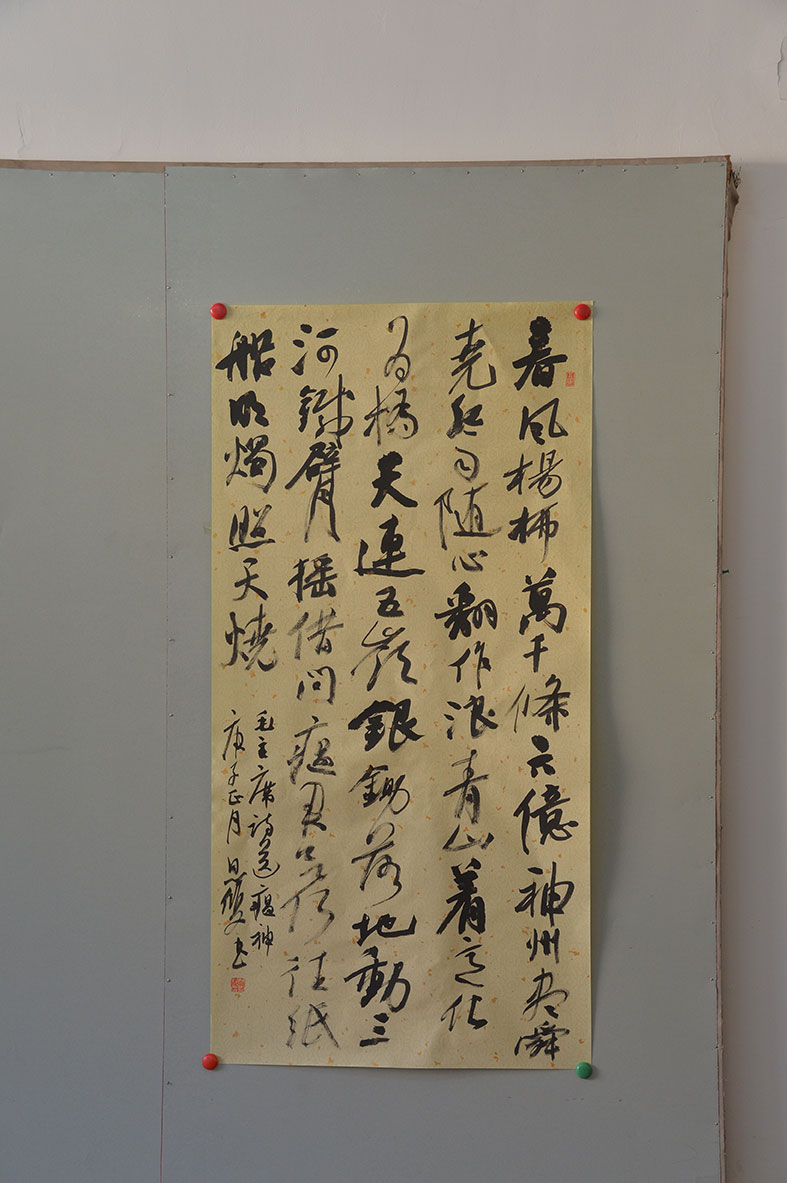 春风楊柳萬千條六億神州尽舜
尧紅雨随心翻作浪青山着意化
为橋天連五嶺銀鋤落地動三
河鐵臂摇借問瘟君欲何往紙
船明燭照天燒
毛主席诗送瘟神
庚子正月书